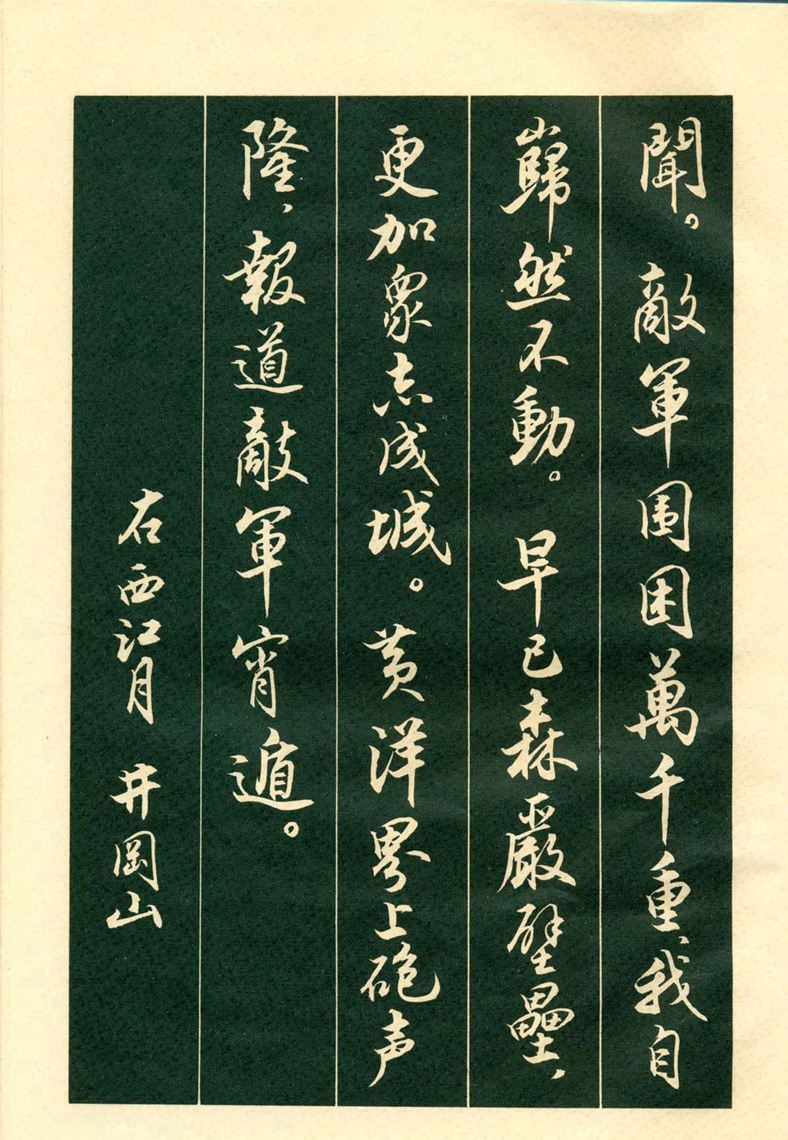 聞。敵軍围困萬千重、我自
巋然不動。早已森嚴壁壘、
更加衆志成城。黄洋界上砲声
隆、報道敵軍宵遁。
右西江月 井岡山